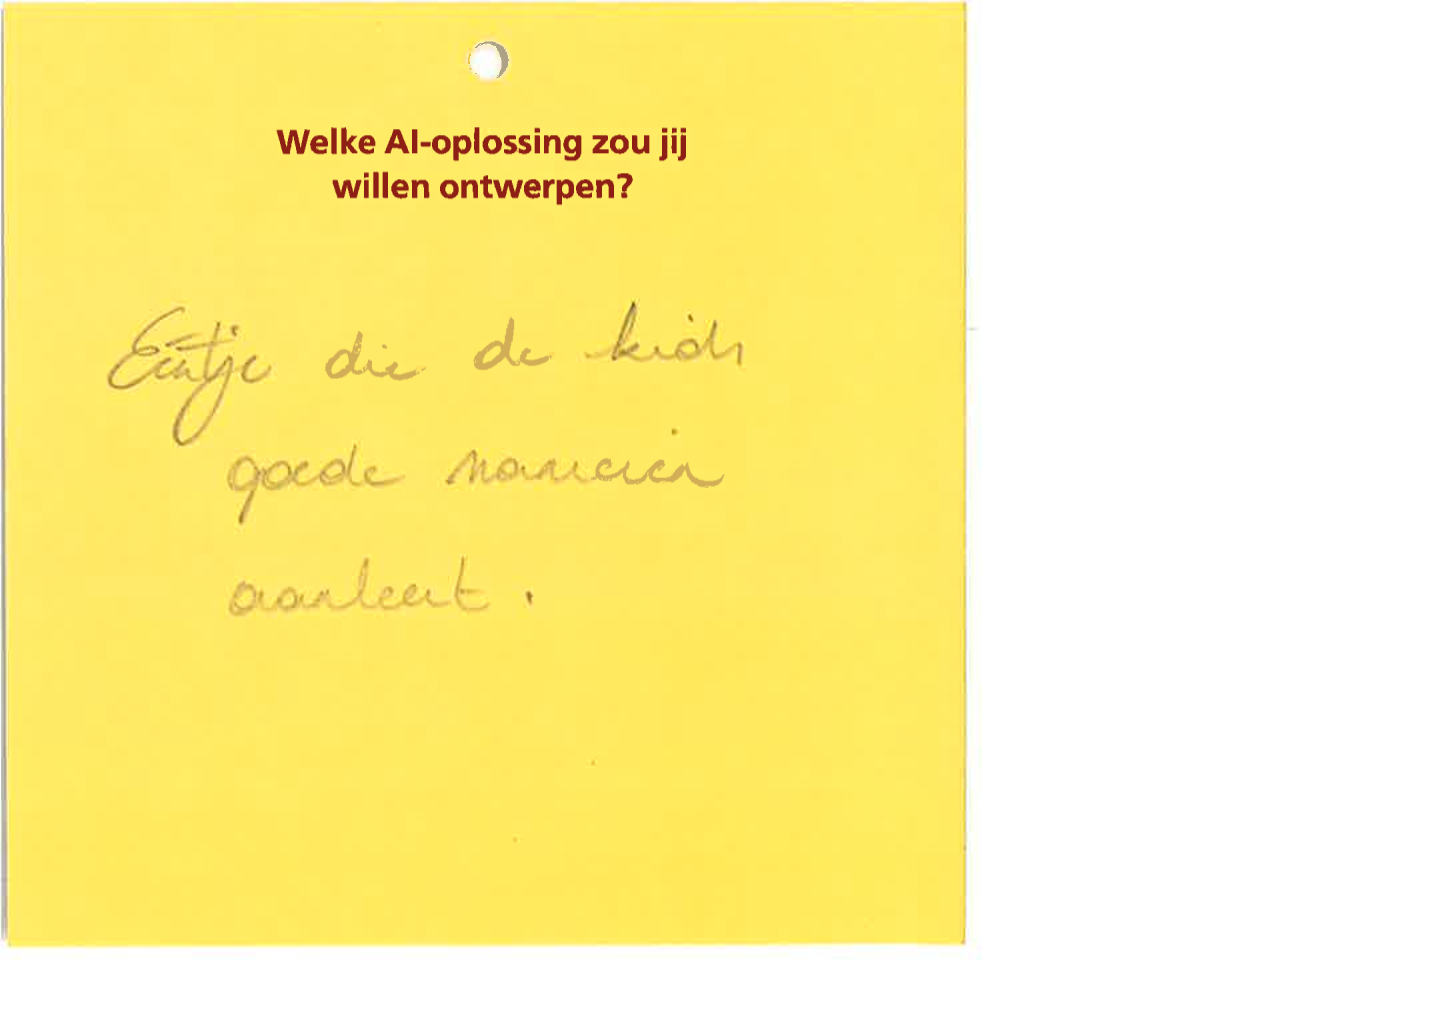 Welke AI-oplossing zou jij
willen ontwerpen?
Eentje die de kids
goede manieren
aanleert.